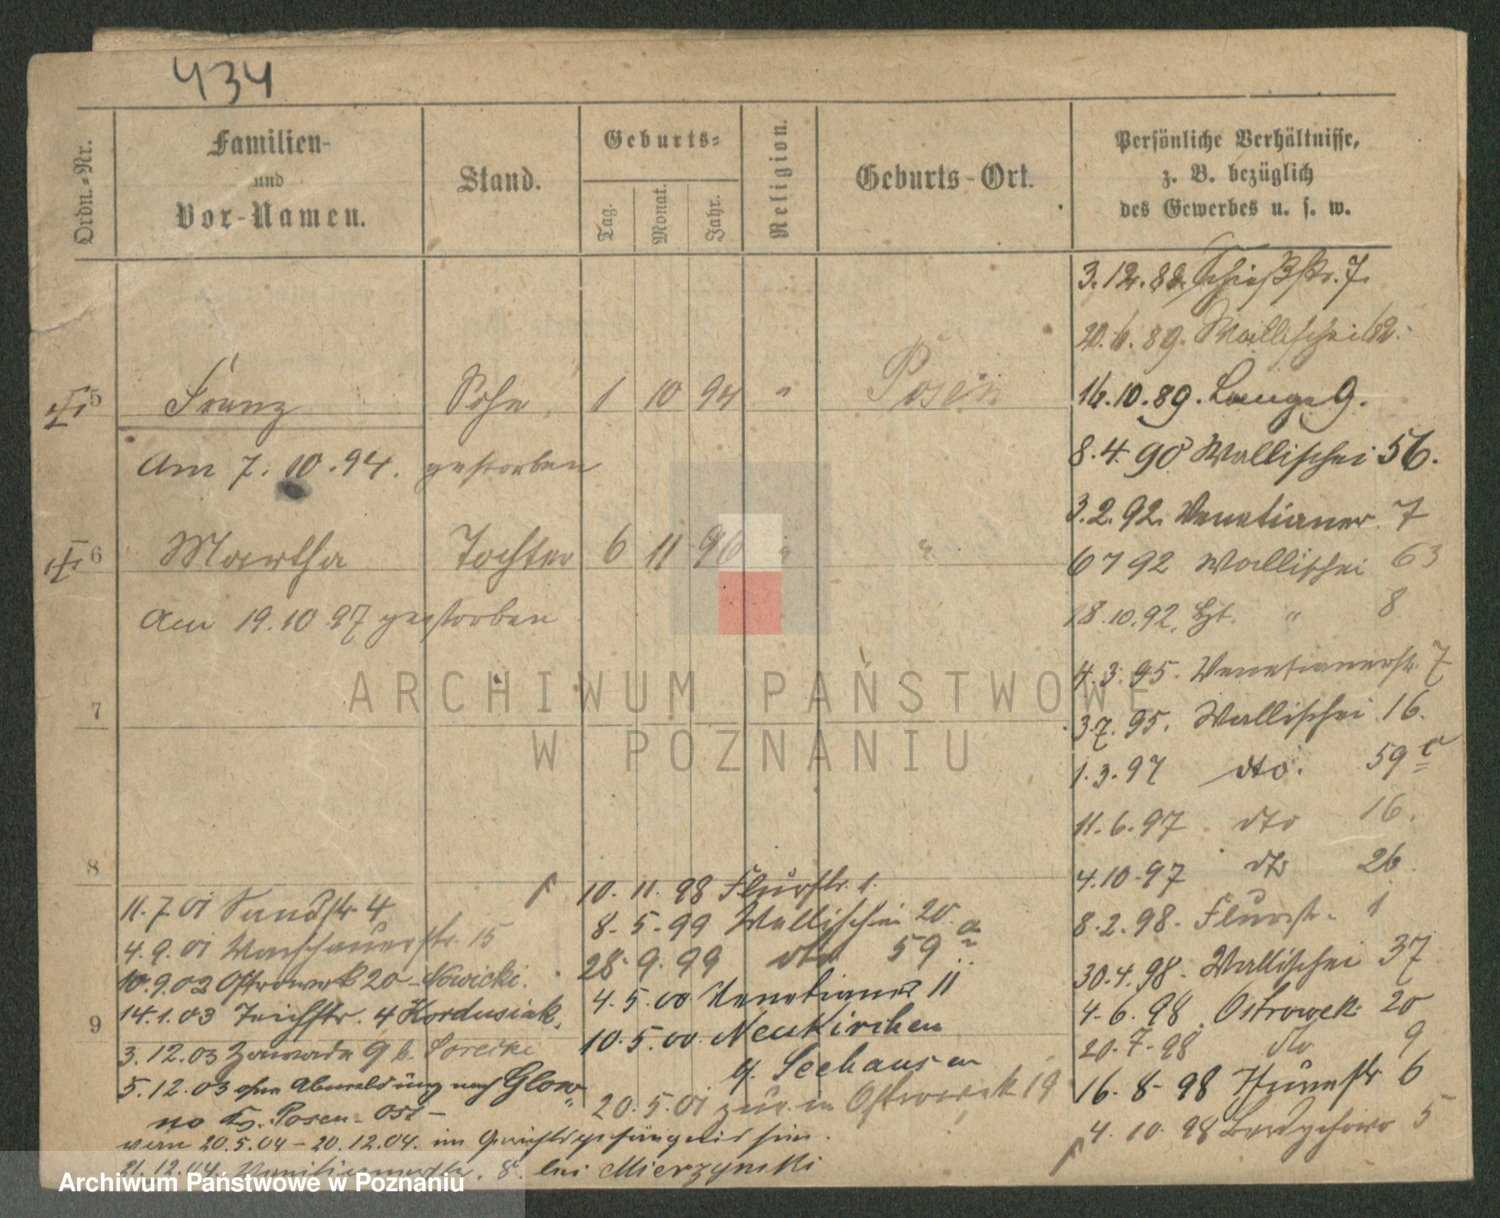 434
Ordn.-Nr.
Familien-
und
Vor-Namen.
Stand.
Geburts-
Tag.
Monat.
Jahr.
Religion.
Geburts-Ort.
Persönliche Verhältnisse,
z. B. bezüglich
des Gewerbes u. s. w.
5 Franz Sohn. 1 10 94 " Posen
Am 7. 10. 94. gestorben
6 Martha Tochter 6 11 96 " "
Am 19. 10 97 gestorben
7
8
9
3. 12. 88. Schießstr. 7.
20. 6. 89. Wallischei 62.
16. 10. 89. Lange 9.
8. 4. 90 Wallischei 56.
3. 2. 92. Venetianer 7
6 7 92 Wallischei 63
18. 10. 92. " 8
4. 3. 95. Venetianerstr. 7
3. 7. 95. Wallischei 16.
1. 3. 97 dto. 59 a
11. 6. 97 dto 16.
4. 10. 97 dto 26
8. 2. 98. Flurstr. 1
30. 4. 98. Wallischei 37
4. 6. 98. Ostrowek 20
20. 7. 98 dto 9
16. 8. 98 Thurmstr 6
4. 10. 98 5
10. 11. 98 Flurstr. 1.
8. 5. 99 Wallischei 20.
28. 9. 99 dto 59 a
4. 5. 00 Venetianer 11
10. 5. 00 Neukirchen
Seehausen
20. 5. 01 Ostrowek 19
11. 7. 01 Sandstr. 4
4. 9. 01 Warschauerstr. 15
10. 9. 02 Ostrowek 20 - Nowicki.
14. 1. 03 Teichstr. 4 Kordusiak.
3. 12. 03 Zawade 9 b.
5. 12. 03 ohne Abmeldung nach Glow-
no Kr. Posen-Ost -
vom 20. 5. 04 - 20. 12. 04. im Gerichtsgefängnis hier.
21. 12. 04. 8. bei Mierzynski
ARCHIWUM PAŃSTWOWE
W POZNANIU
Archiwum Państwowe w Poznaniu